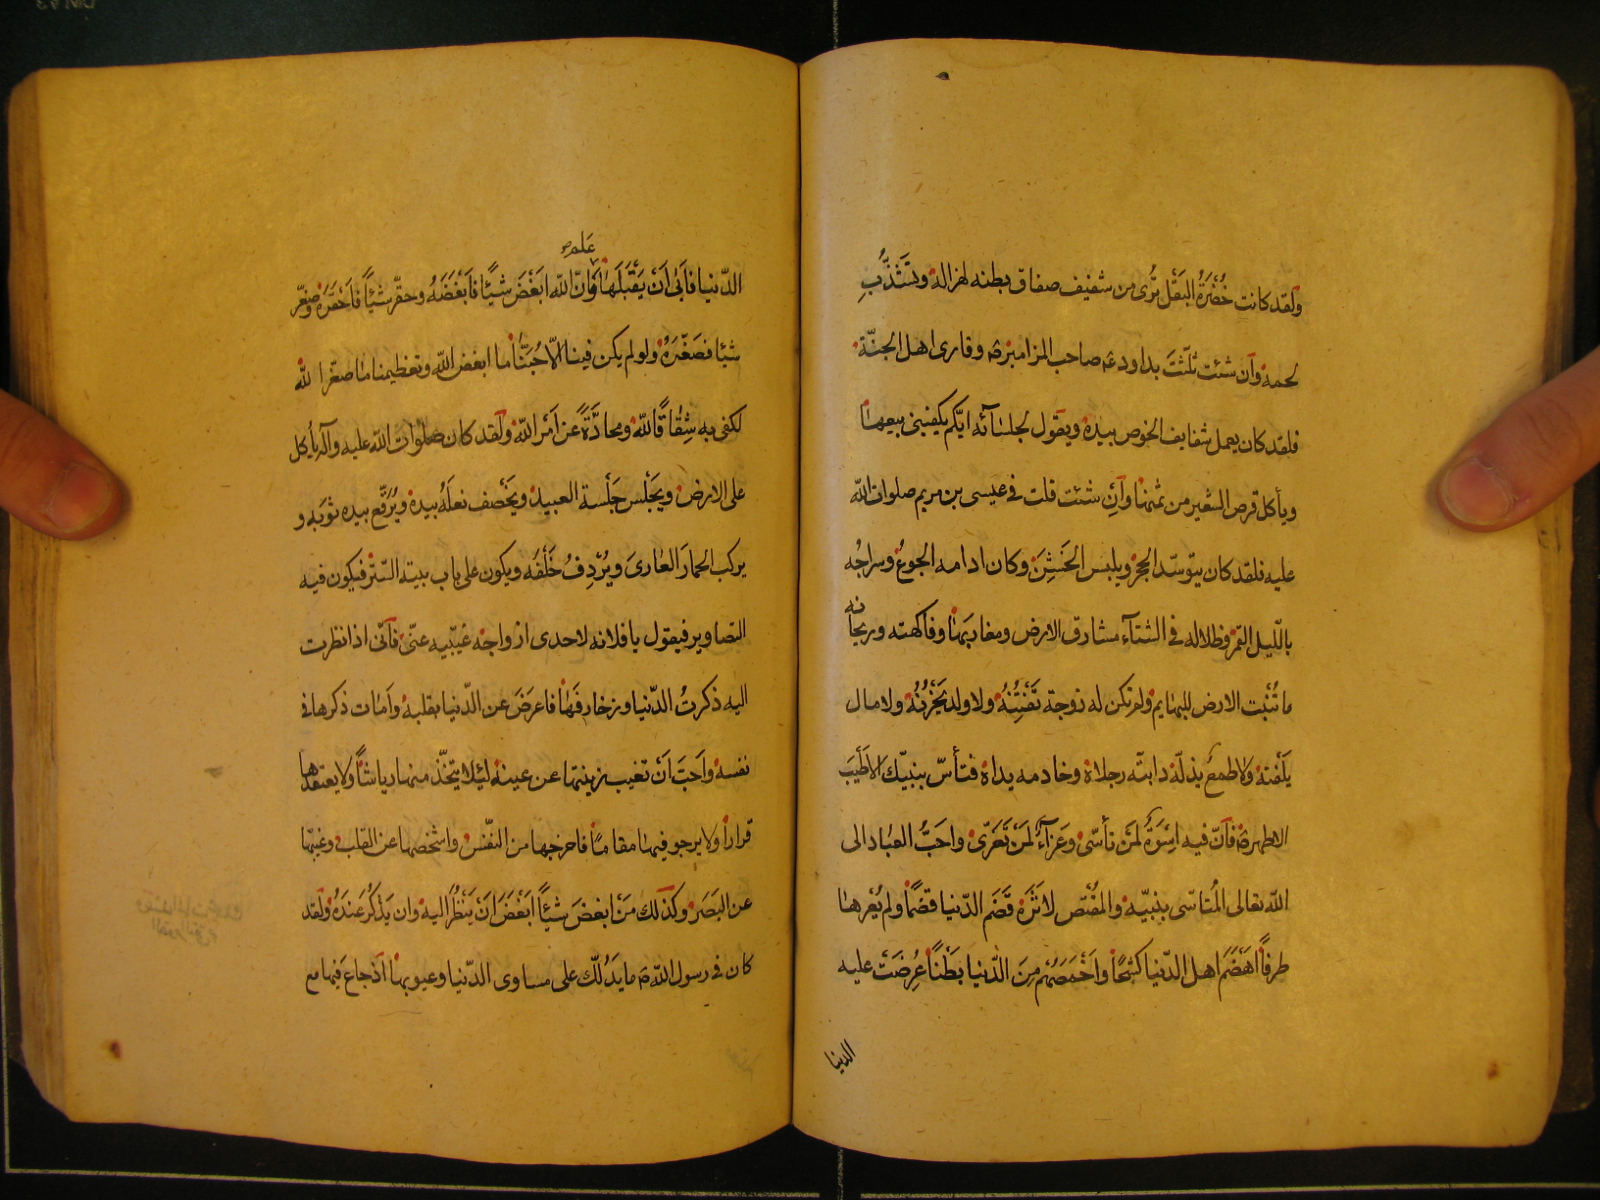 ولقد كانت خُضْرَةُ البَقْل تُرى من شفيف صفاق بطنه لهزاله وتَشَذُّبِ
لحمه وَاِن شئت ثلّثتَ بداود صاحب المزامير وقارى اهل الجنّة
فلقد كان يعمل سفايف الخوص بيده ويقول لجلسٰآئه ايّكم يكفينى بيعهٰا
ويأكل قرص الشعير من ثمنها وَاِن شئت قلت فى عيسى بن مريم صلوات اللّه
عليه فلقد كان يتوسّد الحجر ويلبس الخَشِنَ وكان ادامه الجوعُ وسراجُه
باللّيل القمر وظلاله فى الشتآء مشارق الارض ومغاربَهٰا وفاكهته وريحانه
ما تُنْبت الارض للبهٰايم ولم تكن له زوجة تَفْتِنُهُ ولا ولد يَحْزُنُهُ ولا مال
يَلْفته ولا طمعٌ يذلّه دابته رجلاه وخادمه يداه فتأسّ بنبيّك الاطْيَب
الاطهر فَاِنّ فيه اسْوَةً لمَن تأسّى وعَزآءً لمَنْ تَعَزّى واحَبُّ العبٰاد الى
اللّه تعالى المُتاسّى بنبيّه والمُقْتص لاثَرِه قَضَم الدّنيا قضمًا ولم يُعِرهٰا
طرفًا اَهْضَمُ اهل الدّنيا كشحًا واَخْمَصُهُم مِنَ الدّنيا بَطْنًا عُرِضَتْ عليه
الدنيا
عَلِمَ
الدّنيا فاَبى اَنْ يَقْبَلَهٰا وَاَنّ اللّه ابْغَضَ شَيْئًا فَابْغَضَهُ وحقّر شَيْئًا فَاحْقَرَه وصغّر
شيئا فصَغّرَهُ ولو لم يكن فينا الّا حُبّنٰا ما ابغض اللّه وتعظيمنا مٰا صغّر اللّه
لكفى به شِقٰاقًا للّه ومحادَّةً عن اَمْرِ اللّه ولقد كان صلوات اللّه عليه وآله يأكل
على الارض ويَجْلس جَلْسة العبيد ويَخْصف نعلَهُ بيده ويُرَقّع بيده ثوبَه و
يركب الحمارَ العٰارىَ ويُرْدِفُ خَلْفَه ويكون على باب بيته السّتْر فيكون فيه
التصاوير فيقول يا فلانه لاحدى ازواجِه غيّبيه عنّى فَاِنّى اذا نظرت
اليه ذكرتُ الدّنيا وزخارفَهٰا فاعرَضَ عن الدّنيا بقلبه وَاَمٰات ذكرها فى
نفسه واَحبّ اَن تغيب زينتها عن عينه ليلا يتّخذ منها رياشًا ولا يعتقدها
قرارًا ولا يرجو فيهٰا مقامًا فاخرجها من النّفْس واشخصها عن القلب وغيّبَها
عن البَصَر وكذلك مَنْ ابغضَ شَيئًا ابْغَضَ اَنْ يَنْظُرَ اليه وان يذْكُرَ عندهُ ولقد
كان فى رسول اللّه ما يَدُلّك على مساوى الدّنيا وعيوبهٰا اذ جاعَ فيهٰا مع